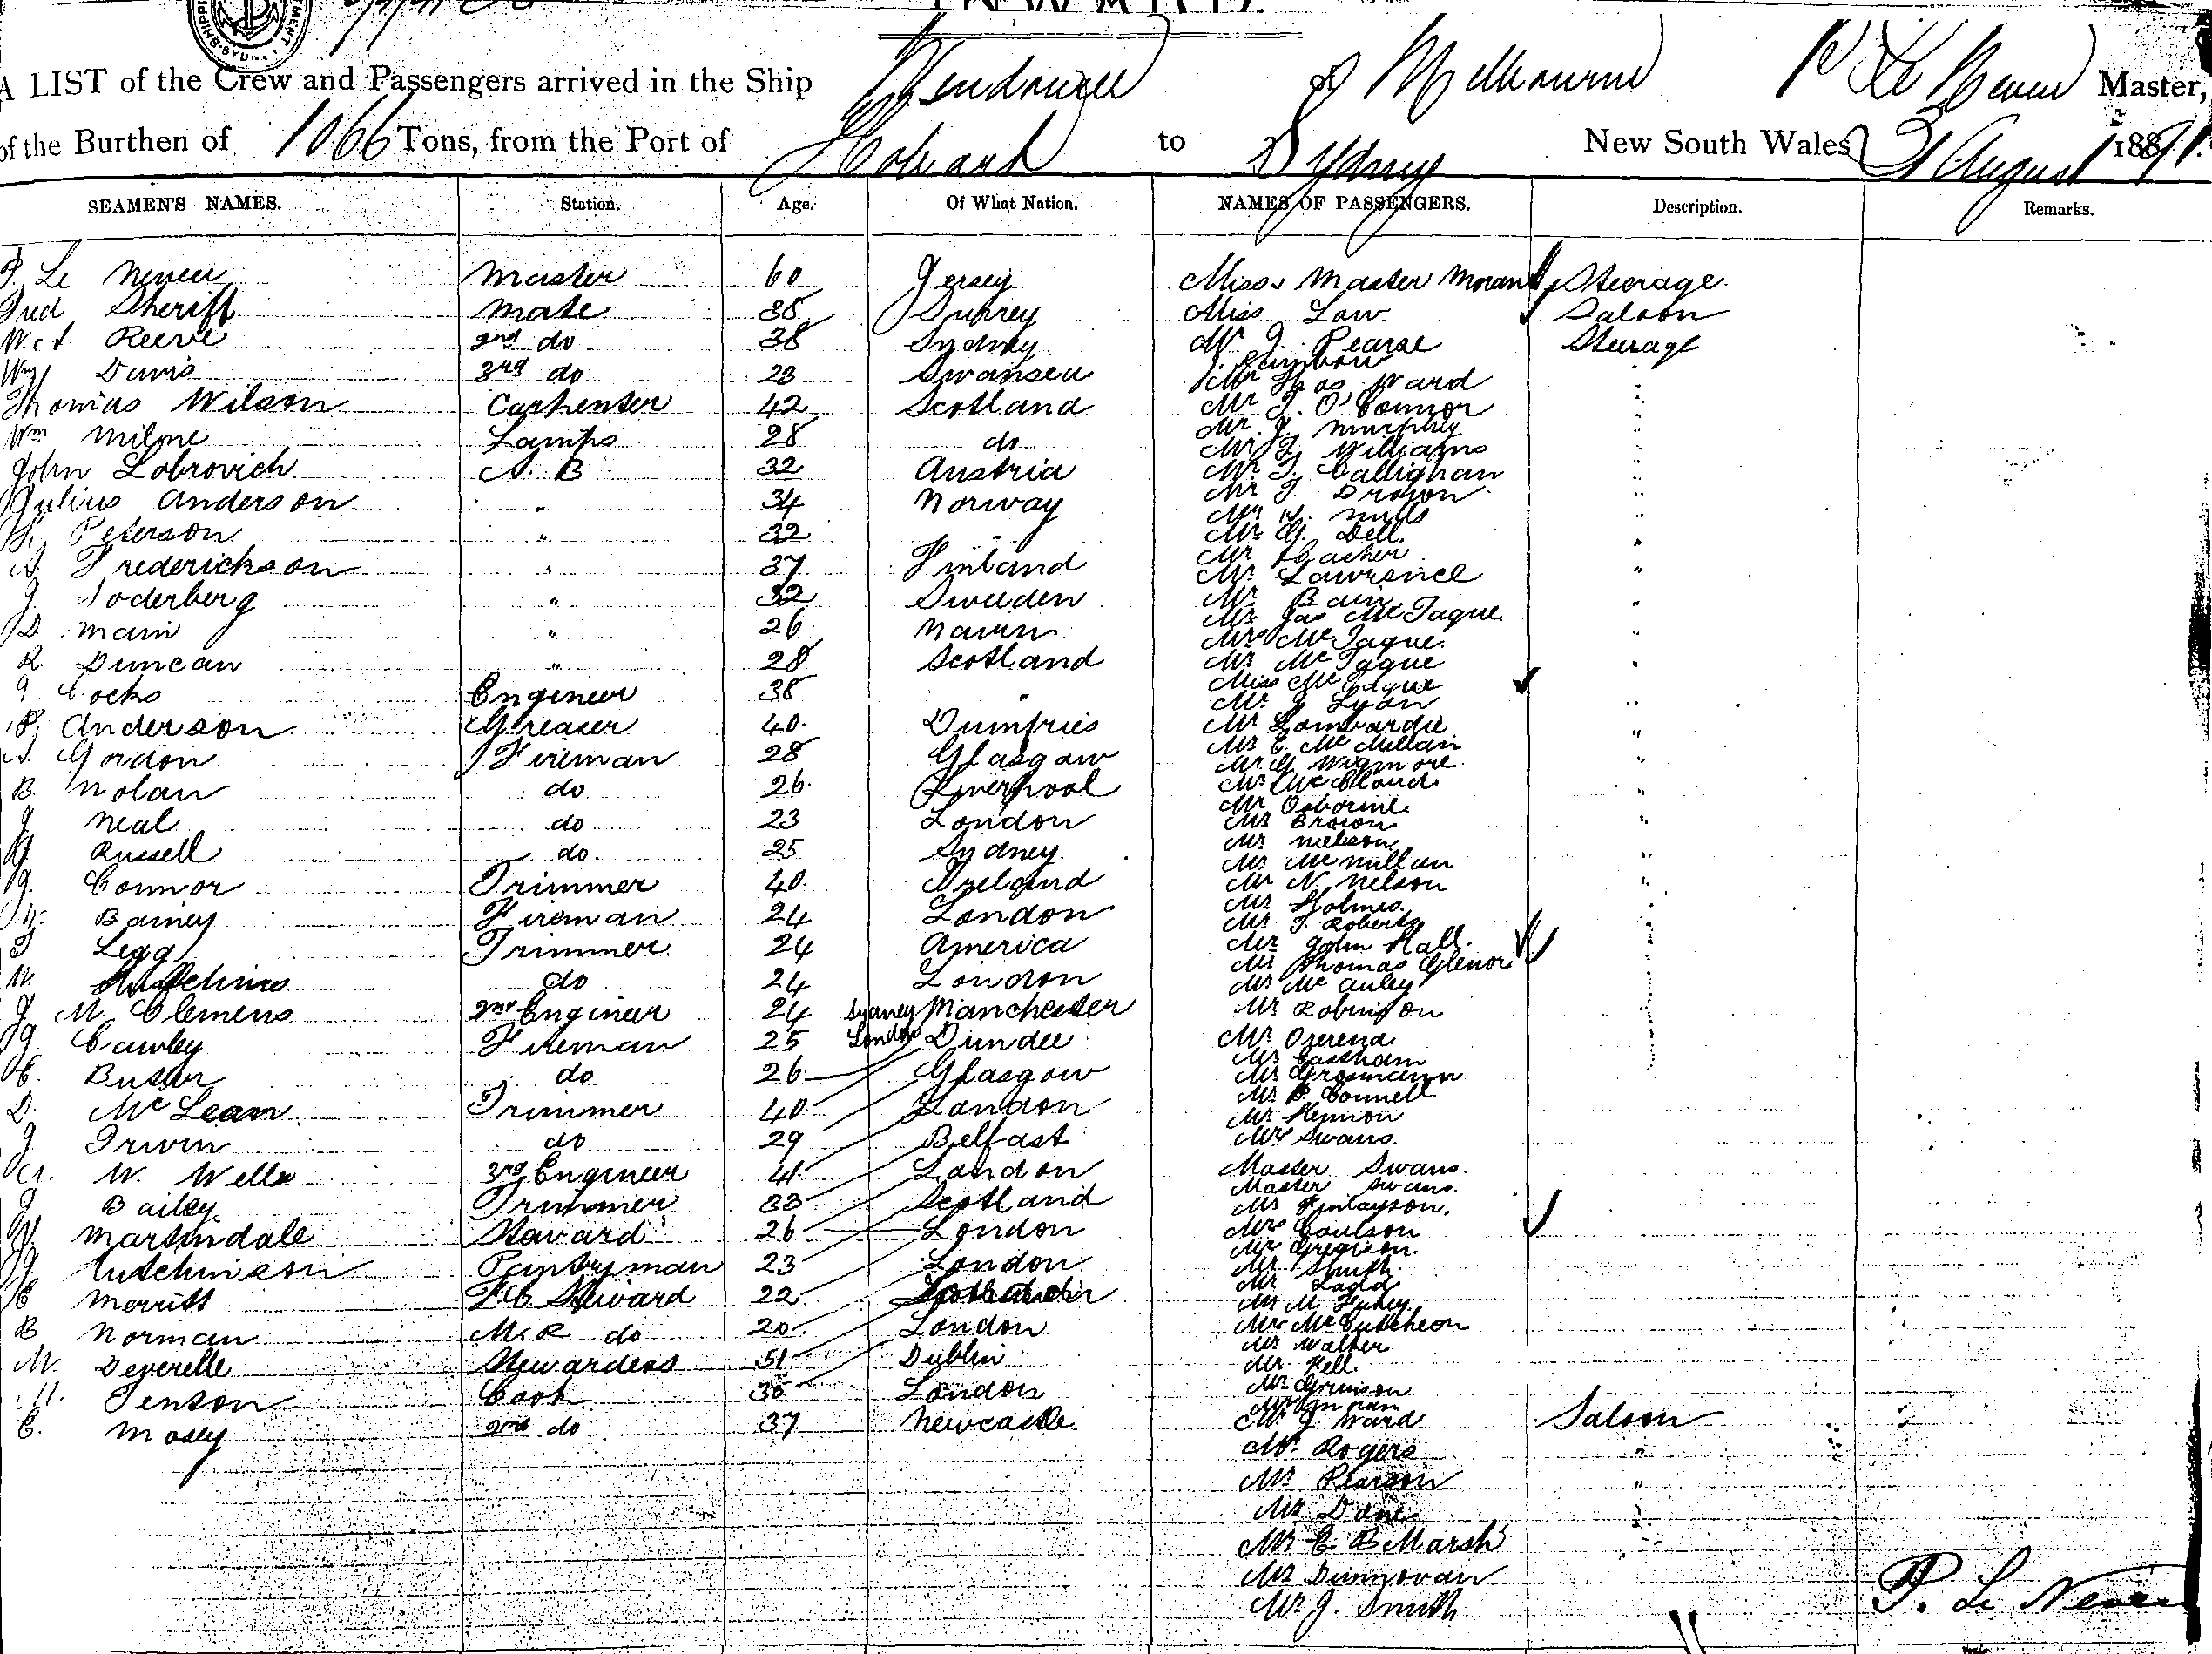 INWARD.
A LIST of the Crew and Passengers arrived in the Ship Wendouree of Melbourne P Le Neveu Master,
of the Burthen of 1066 Tons, from the Port of Hobart to Sydney New South Wales 31 August 1891.
SEAMEN'S NAMES. Station. Age. Of What Nation. NAMES OF PASSENGERS. Description. Remarks.
P. Le Neveu Master 60 Jersey Miss & Master Morant Steerage
Fred Sheriff Mate 38 Surrey Miss Law Saloon
Reeve 2nd do 38 Sydney Mr J. Pearse Steerage
Wm Davis 3rd do 23 Swansea
Mr Thos Ward
Thomas Wilson Carpenter 42 Scotland Mr T. O'Connor
Wm Milne Lamps 28 do Mr J. Murphy
Mr J. Williams
John Lobrovich A. B 32 Austria Mr T. Callighan
Julius Anderson " 34 Norway Mr J. Brown
Mr W. Mills
Peterson " 32 " Mr G. Dell
Mr
A. Frederickson " 37 Finland Mr Lawrence
J. Soderberg " 32 Sweeden Mr Bain
Mr Jas McTague
D. Main " 26 Nairn Mrs McTague
R Duncan " 28 Scotland Mr McTague
J. Cocks Engineer 38 " Miss McTague
Mr J Lyon
P. Anderson Greaser 40 Dumfries Mr Lombardie
Mr E. McMillan
A. Gordon Fireman 28 Glasgow Mr G Wigmore
B. Nolan do 26 Liverpool Mr McCloud
Mr Osborne
J Neal do 23 London Mr Brown
Mr Nielson
Russell do 25 Sydney Mr McMillan
J. Connor Trimmer 40 Ireland Mr N. Nelson
Mr Holmes
Barney Fireman 24 London Mr T. Roberts
T Legg Trimmer 24 America Mr John Hall
Mr Thomas Glenor
W. do 24 London Mr McAuley
J M. Clemens 2nd Engineer 24 Sydney Manchester Mr Robinson
J Cawley Fireman 25 London Dundee Mr Ozerend
Mr Eastham
C. Buster do 26 Glasgow Mr Grosmann
Mr P. Connell
D. McLean Trimmer 40 London Mr Hennon
J Irwin do 29 Belfast Mrs Swans.
W. Wells 3rd Engineer 41 London Master Swans.
Master Swans.
J Bailey Trimmer 33 Scotland Mr Finlayson.
W. Martindale Steward 26 London Mrs Coulson
Mr Gregison.
J Hutchinson Pantryman 23 London Mr Smith
Mr Ladd
C Merritt F.C Steward 22 Mr M. Fahey
B Norman M.R do 20 London Mrs McCutcheon
Mr Walter
M. Deverelle Stewardess 51 Dublin Mr Kell
H. Jenson Cook 36 London Mr Grunson
C. Mosey 2nd do 37 Newcastle Mr J. Ward Saloon
Mr Rogers "
Mr Pearson "
Mr Dane "
Mr E. B Marsh "
Mr Dunnovan
Mr J. Smith
P. Le Neveu